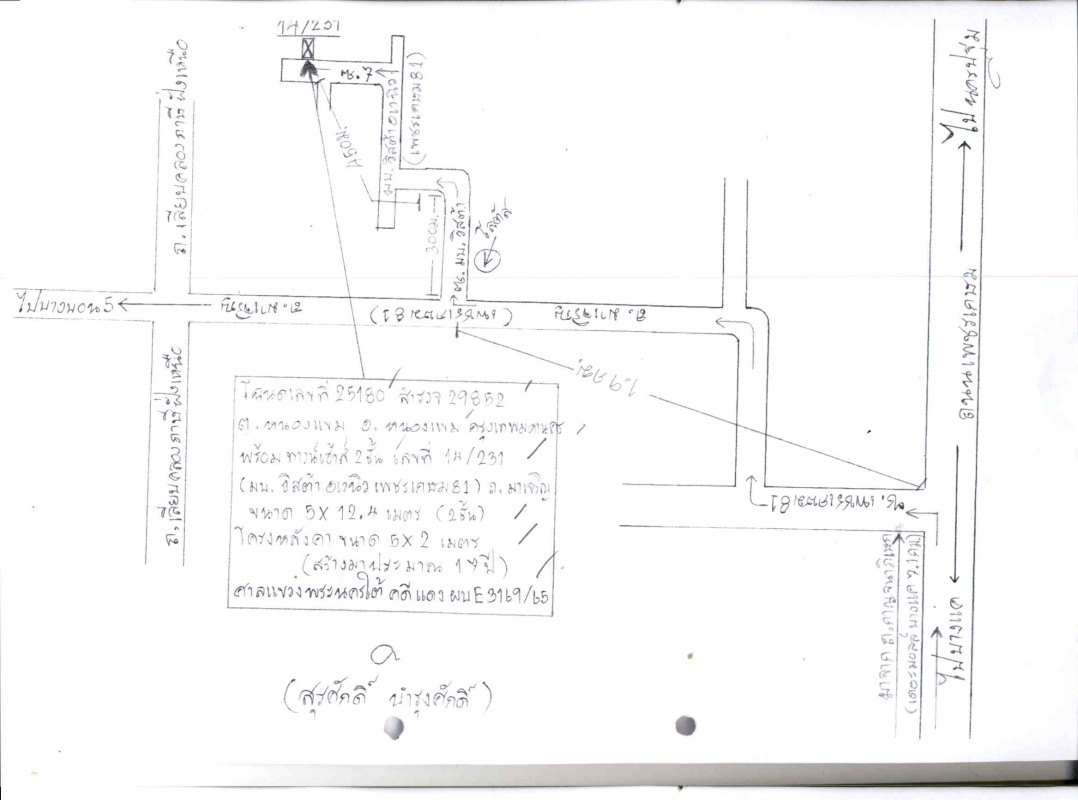 14/231
ซ.7
มบ. วิสต้า อเวนิว
(เพชรเกษม 81)
450ม.
300ม.
ซ. มบ. วิสต้า
ถ. เลียบคลองภาษีฝั่งเหนือ
ไปบางบอน5
ถ. มาเจริญ
(เพชรเกษม 81)
ถ. มาเจริญ
1.9 กม.
ถ. เลียบคลองภาษีฝั่งเหนือ
ไปนครปฐม
ถนนเพชรเกษม
ไปบางแค
ซ. เพชรเกษม 81
มาจาก ถ.กาญจนาภิเษก
(เดอะมอลล์ บางแค
โฉนดเลขที่ 25180 สำรวจ 29852
ต. หนองแขม อ. หนองแขม กรุงเทพมหานคร
พร้อม ทาวน์เฮ้าส์ 2ชั้น เลขที่ 14/231
(มบ. วิสต้า อเวนิว เพชรเกษม 81) ถ. มาเจริญ
ขนาด 5X 12.4 เมตร (2ชั้น)
โครงหลังคา ขนาด 5X 2 เมตร
(สร้างมาประมาณ ปี)
ศาลแขวงพระนครใต้ คดีแดง ผบE 3169/65
(สุรศักดิ์ บำรุงศักดิ์)